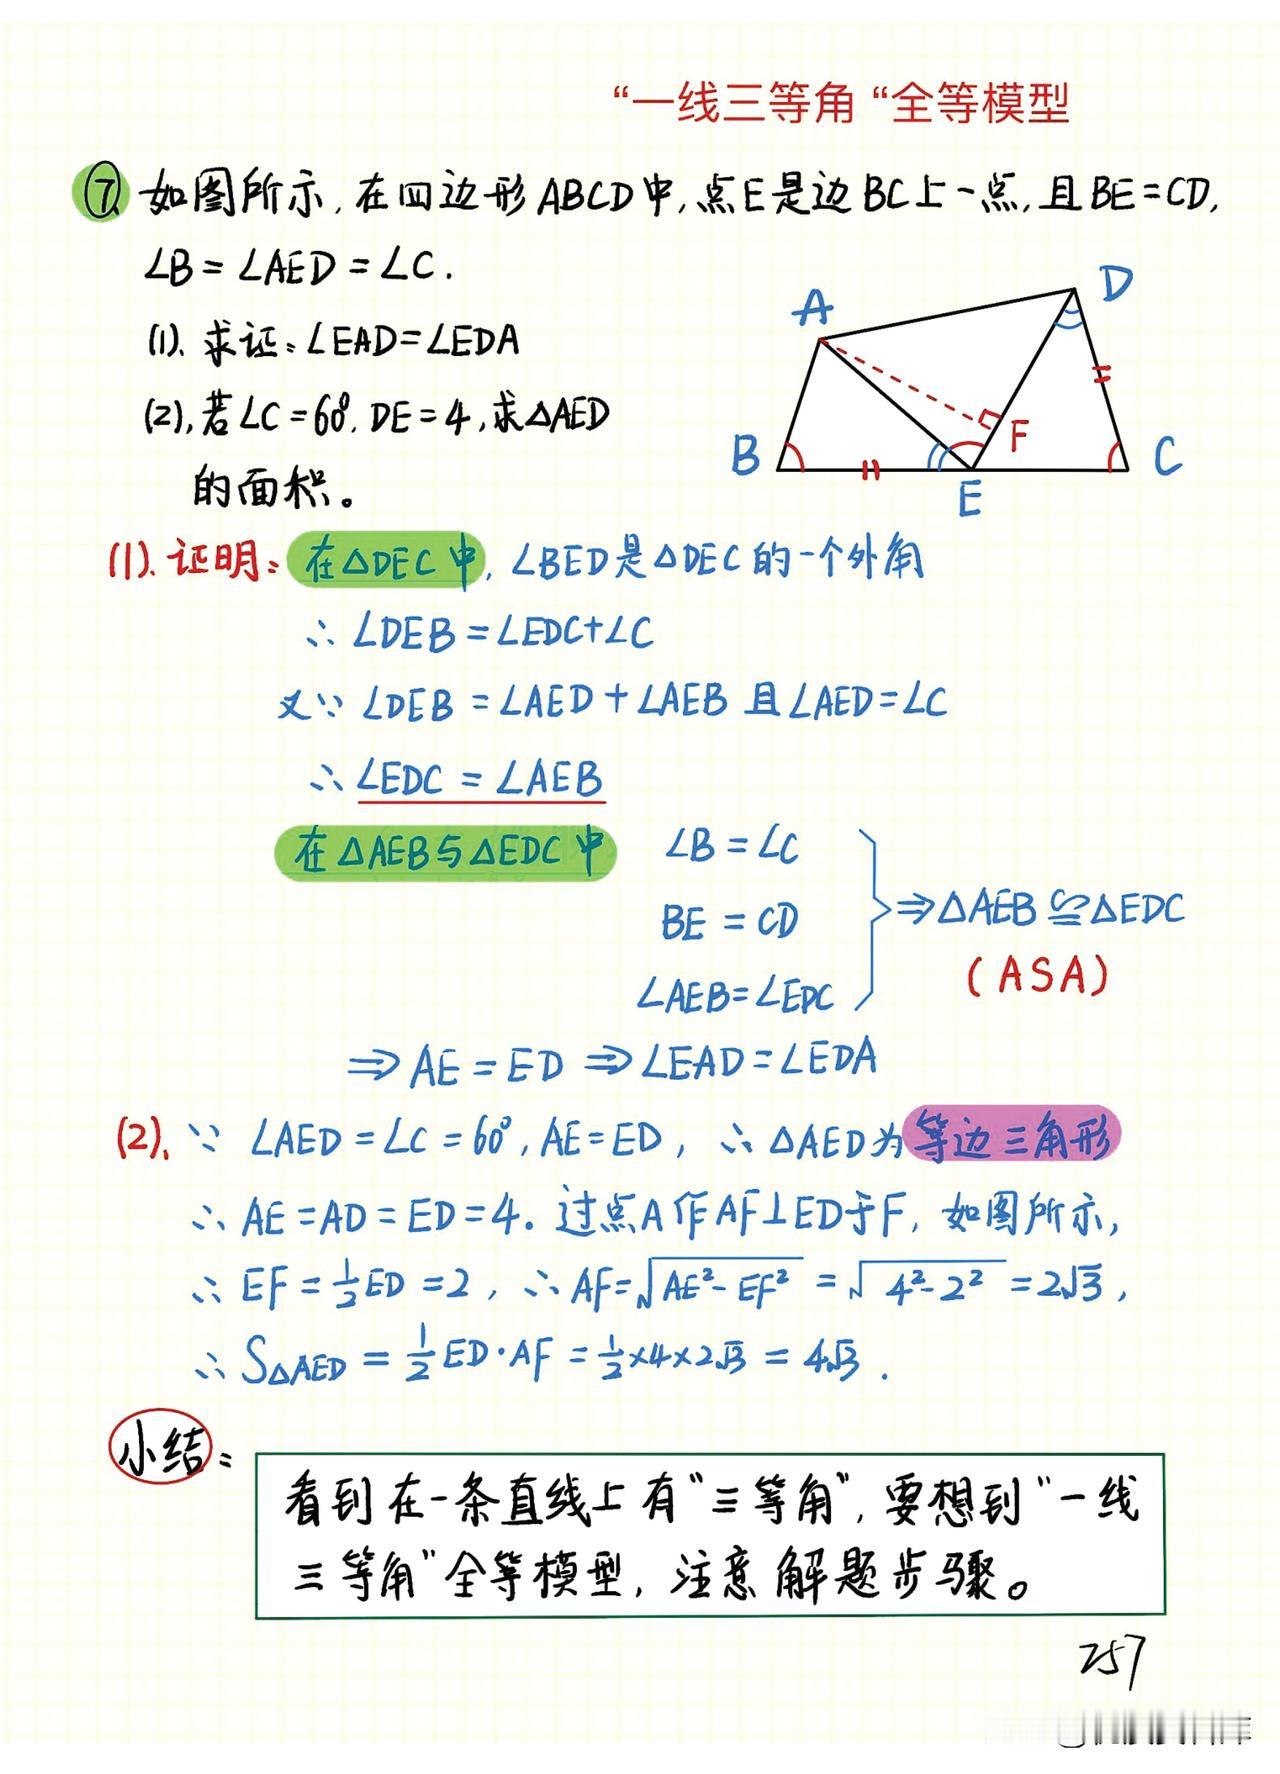 “一线三等角“全等模型
⑦ 如图所示,在四边形ABCD中,点E是边BC上一点,且BE=CD,
∠B=∠AED=∠C.
(1).求证:∠EAD=∠EDA
(2),若∠C=60°,DE=4,求△AED
的面积。
A
D
B
F
C
E
(1).证明:在△DEC中,∠BED是△DEC的一个外角
∴∠DEB=∠EDC+∠C
又∵∠DEB=∠AED+∠AEB且∠AED=∠C
∴∠EDC=∠AEB
在△AEB与△EDC中
∠B=∠C
BE=CD
∠AEB=∠EDC
⇒△AEB≌△EDC
(ASA)
⇒AE=ED⇒∠EAD=∠EDA
(2).∵∠AED=∠C=60°,AE=ED,∴△AED为等边三角形
∴AE=AD=ED=4.过点A作AF⊥ED于F,如图所示,
∴EF=½ED=2,∴AF=√(AE²-EF²)=√(4²-2²)=2√3,
∴S△AED=½ED·AF=½×4×2√3=4√3.
小结:
看到在一条直线上有“三等角”,要想到“一线
三等角”全等模型,注意解题步骤。
257